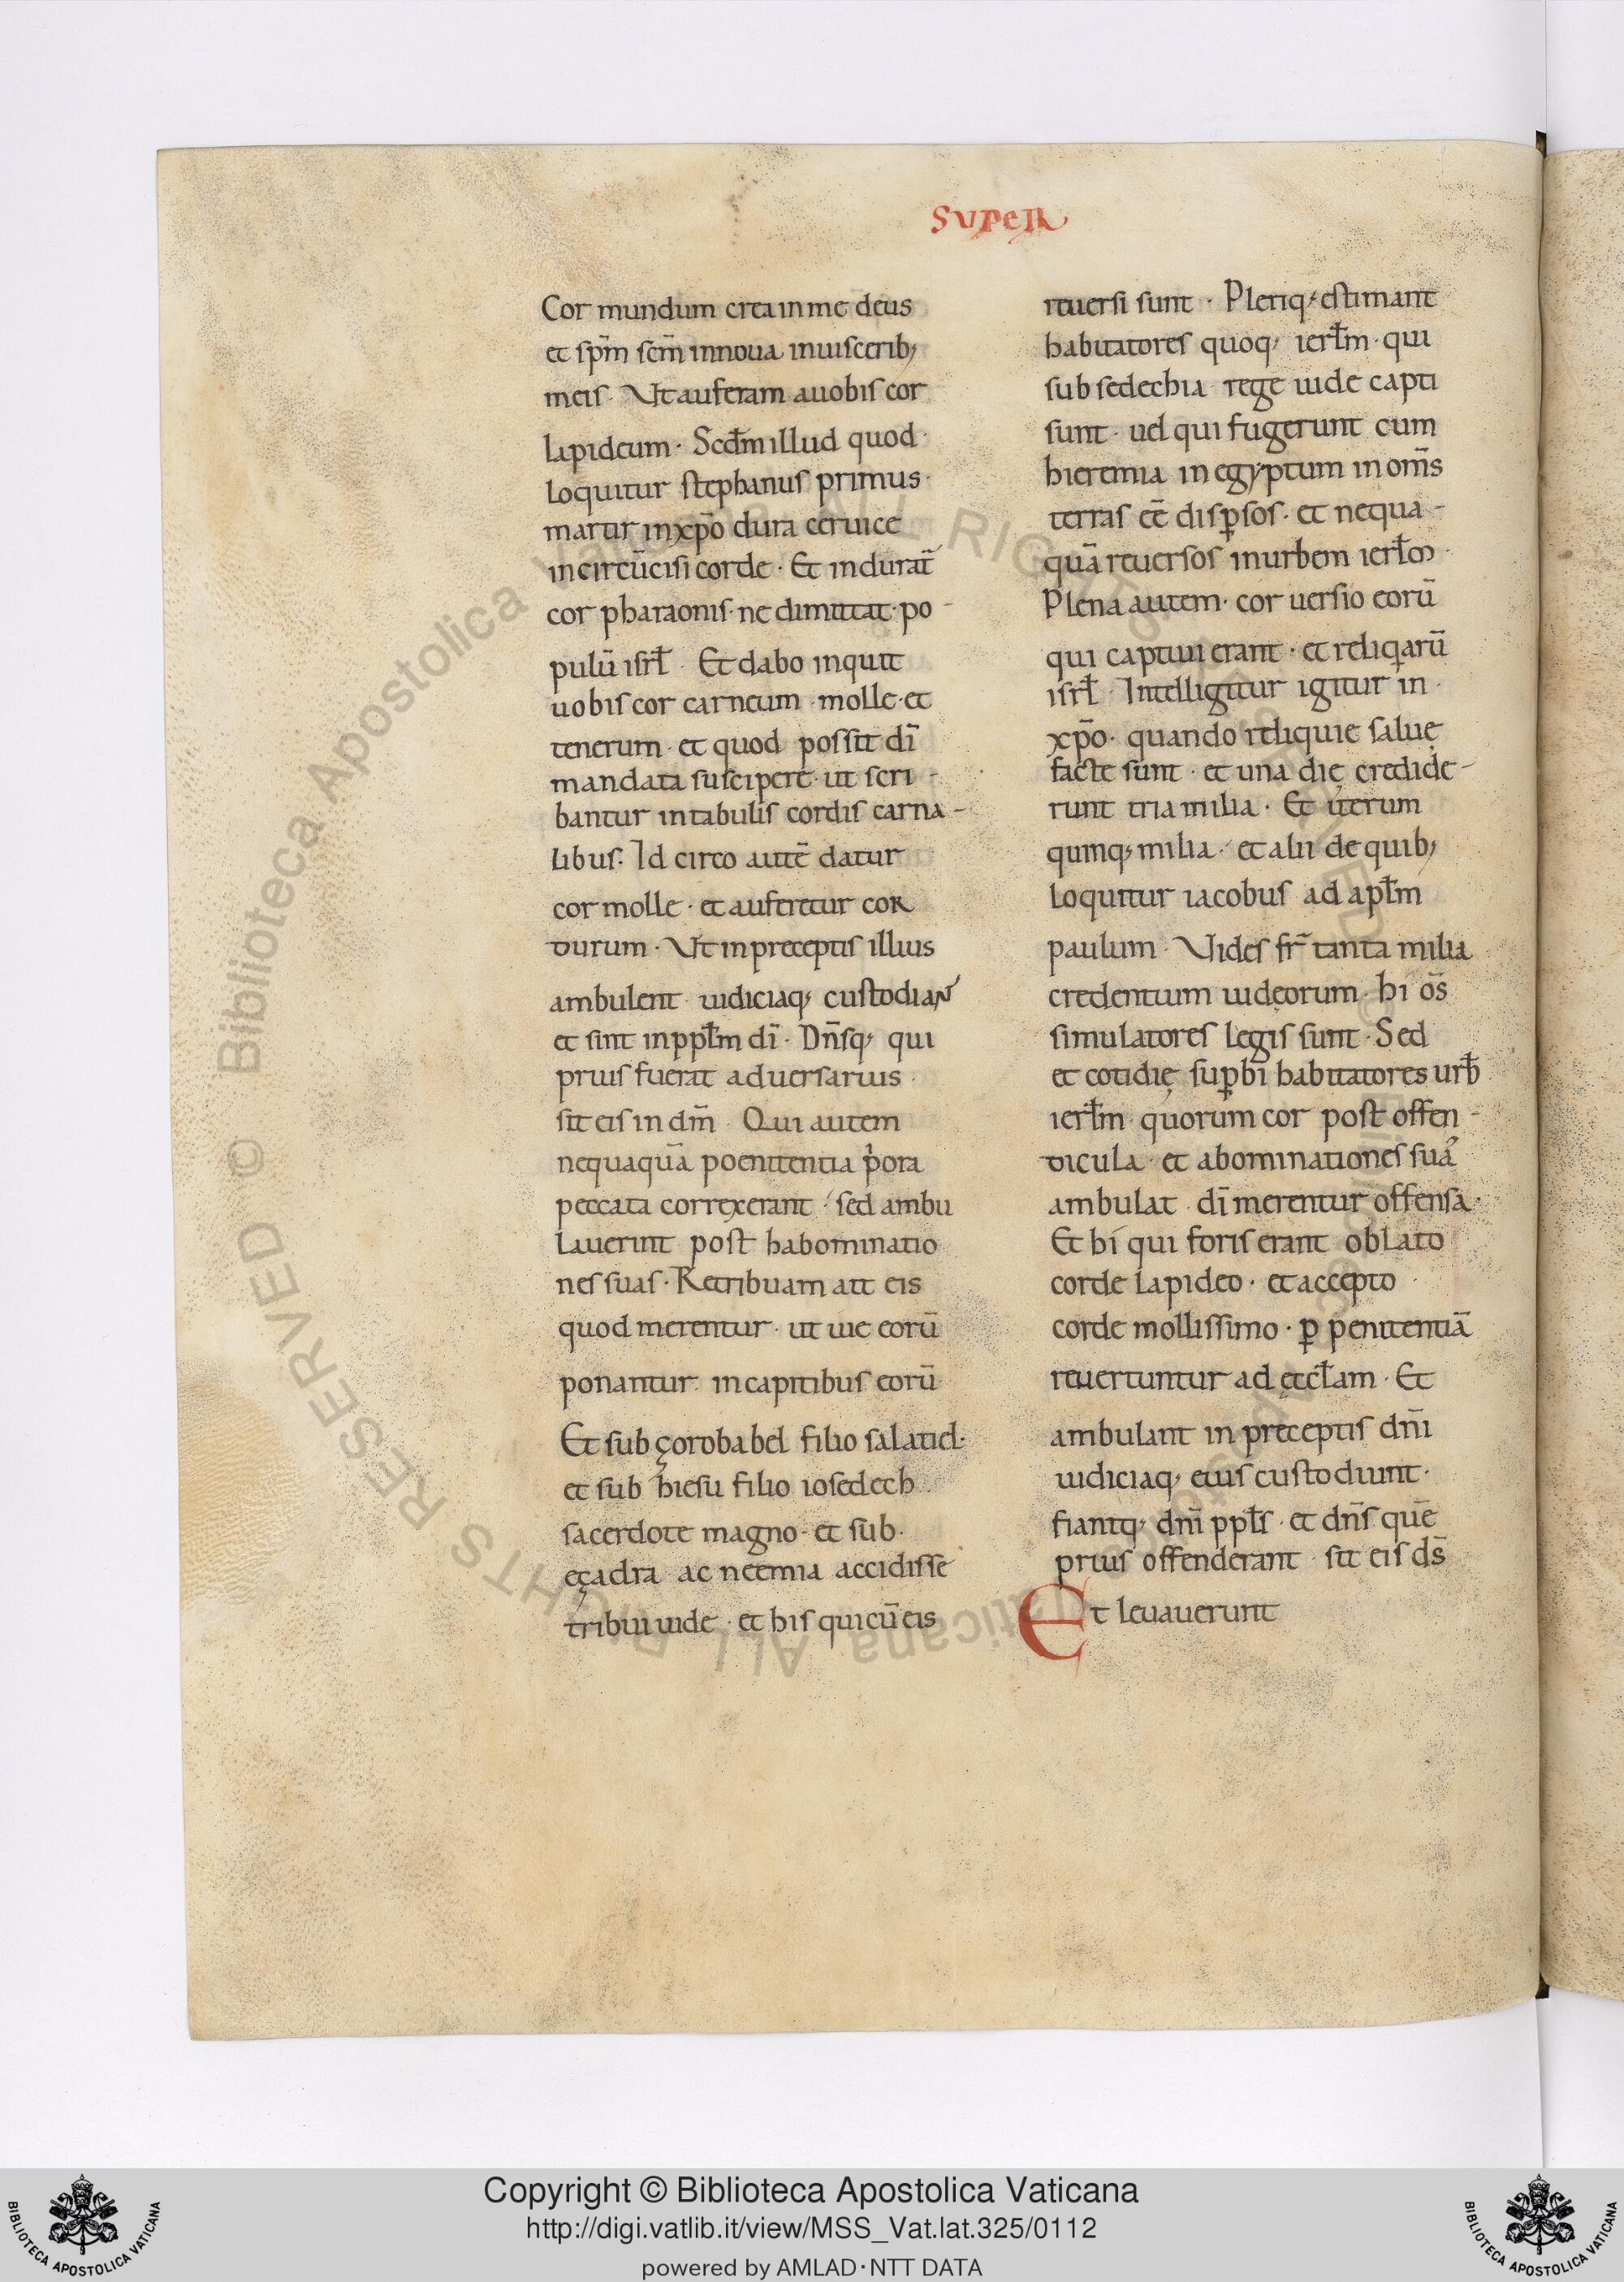 SUPER
Cor mundum crea in me deus
et sp̄m sc̄m innoua inuiscerib;
meis. Ut auferam auobis cor
lapideum. Scd̄m illud quod
loquitur stephanus primus
martir inxp̄o dura ceruice
incircūcisi corde. Et indurat̄
cor pharaonis. ne dimittat. po-
pulū isrł. Et dabo inquit
uobis cor carneum. molle. et
tenerum. et quod possit dī
mandata suscipere. ut scri-
bantur intabulis cordis carna-
libus. Id circo autē datur
cor molle. et auferetur cor
durum. Ut inpreceptis illius
ambulent iudiciaq; custodiaN
et sint inppłm dī. Dn̄sq; qui
prius fuerat aduersarius.
sit eis in dm̄. Qui autem
nequaquā poenitentia p̍ora
peccata correxerant. sed ambu
lauerint post habominatio
nes suas. Retribuam att eis
quod merentur. ut uie eorū
ponantur. incapitibus eorū
Et sub çorobabel filio salatiel.
et sub hiesu filio iosedech
sacerdote magno. et sub.
eçadra ac neemia accidisse
tribui iude. et his quicū eis
reuersi sunt. Pleriq; estimant
habitatores quoq; ierłm. qui
sub sedechia rege iude capti
sunt. uel qui fugerunt cum
hieremia in egyptum in om̄s
terras eē disp̱sos. et nequa-
quā reuersos inurbem ierłm.
Plena autem. cor uersio eorū
qui captiui erant. et reliq̇arū
isrł. Intelligitur igitur in
xp̄o. quando reliquie saluę
facte sunt. et una dię credide-
runt tria milia. Et iterum
quinq; milia. et alii de quib;
loquitur iacobus ad apłm
paulum. Uides fr̄ tanta milia
credentium iudęorum. hi ōs
simulatores legis sunt. Sed
et cotidię sup̱bi habitatores urƀ
ierłm. quorum cor post offen-
dicula. et abominationes suā
ambulat. dī merentur offensa.
Et hi qui foris erant oblato
corde lapideo. et accepto.
corde mollissimo. p̱ penitentiā
reuertuntur ad ęccłam. Et
ambulant in preceptis dn̄i
iudiciaq; eius custodiunt.
fiantq; dn̄i ppłs. et dn̄s quē
prius offenderant. sit eis ds̄
Et leuauerunt
© Biblioteca Apostolica Vaticana ALL RIGHTS RESERVED
Copyright © Biblioteca Apostolica Vaticana
http://digi.vatlib.it/view/MSS_Vat.lat.325/0112
powered by AMLAD·NTT DATA
BIBLIOTECA APOSTOLICA VATICANA
BIBLIOTECA APOSTOLICA VATICANA